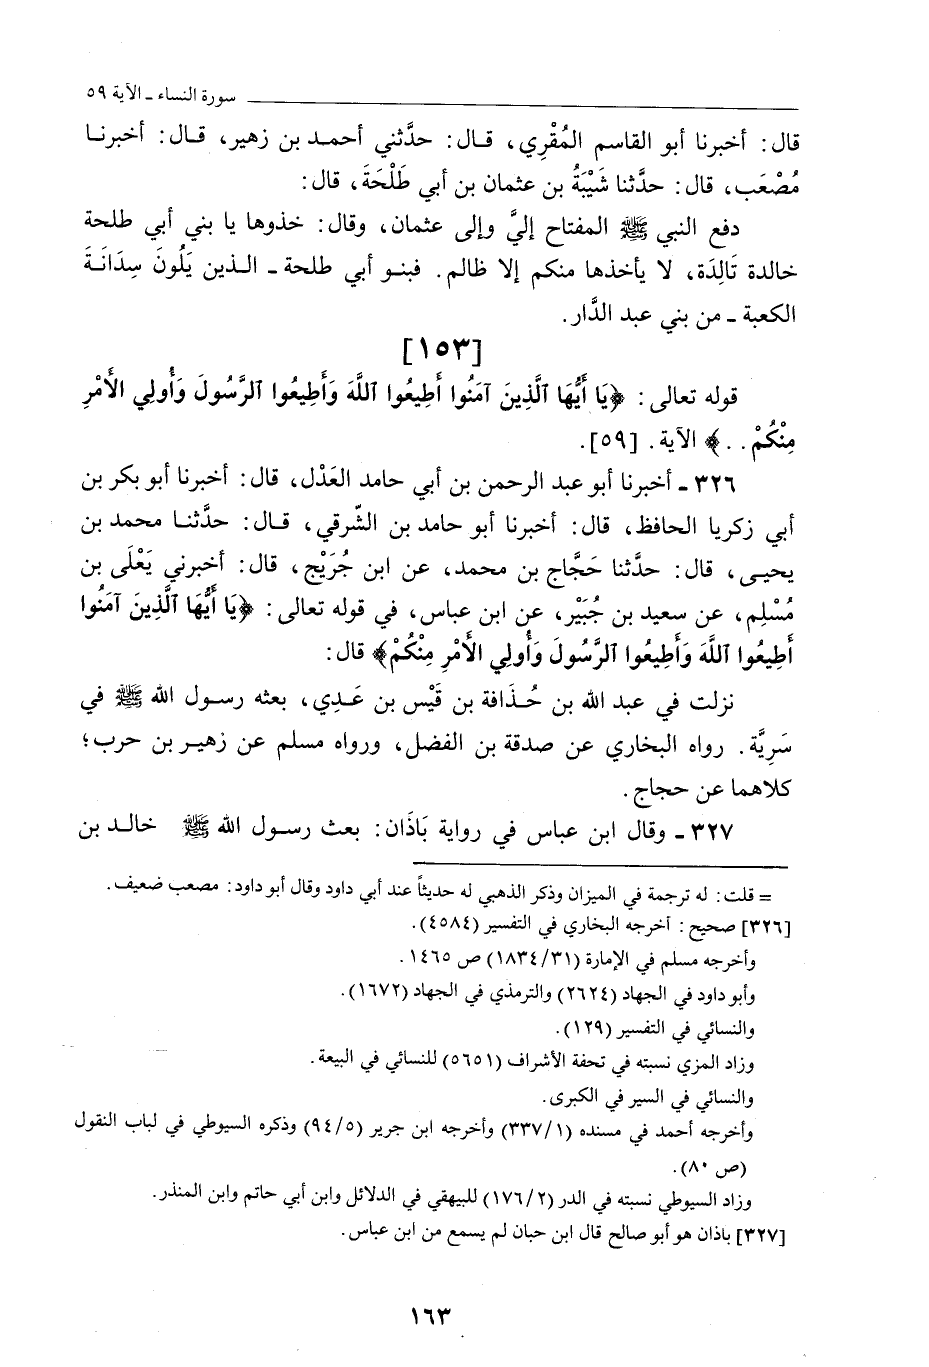 سورة النساء ـ الآية ٥٩
قال: أخبرنا أبو القاسم المُقْرِي، قـال: حدَّثني أحمـد بن زهير، قـال: أخبرنـا
مُصْعَب، قال: حدَّثنا شَيْبَةُ بن عثمان بن أبي طَلْحَةَ، قال:
دفع النبي ﷺ المفتاح إليَّ وإلى عثمان، وقال: خذوها يا بني أبي طلحة
خالدة تَالِدَة، لا يأخذها منكم إلا ظالم. فبنـو أبي طلحة ـ الـذين يَلُونَ سِدَانَـةَ
الكعبة ـ من بني عبد الدَّار.
[١٥٣]
قوله تعالى: ﴿يَا أَيُّهَا ٱلَّذِينَ آمَنُوا أَطِيعُوا ٱللَّهَ وَأَطِيعُوا ٱلرَّسُولَ وَأُولِي الأَمْرِ
مِنْكُمْ..﴾ الآية. [٥٩].
٣٢٦ ـ أخبرنا أبو عبد الرحمن بن أبي حامد العَدْل، قال: أخبرنا أبو بكر بن
أبي زكريا الحافظ، قال: أخبرنا أبو حامد بن الشّرقي، قـال: حدَّثنـا محمد بن
يحيـى، قال: حدَّثنا حَجَّاج بن محمد، عن ابن جُرَيْج، قال: أخبرني يَعْلَى بن
مُسْلِم، عن سعيد بن جُبَيْر، عن ابن عباس، في قوله تعالى: ﴿يَا أَيُّهَا ٱلَّذِينَ آمَنُوا
أَطِيعُوا ٱللَّهَ وَأَطِيعُوا ٱلرَّسُولَ وَأُولِي الأَمْرِ مِنْكُمْ﴾ قال:
نزلت في عبد الله بن حُـذَافة بن قَيْس بن عَـدِي، بعثه رسـول الله ﷺ في
سَرِيَّة. رواه البخاري عن صدقة بن الفضل، ورواه مسلم عن زهيـر بن حرب؛
كلاهما عن حجاج.
٣٢٧ ـ وقال ابن عباس في رواية بَاذَان: بعث رسـول الله ﷺ خالـد بن
= قلت: له ترجمة في الميزان وذكر الذهبي له حديثاً عند أبي داود وقال أبو داود: مصعب ضعيف.
[٣٢٦] صحيح: أخرجه البخاري في التفسير (٤٥٨٤).
وأخرجه مسلم في الإمارة (١٨٣٤/٣١) ص ١٤٦٥.
وأبو داود في الجهاد (٢٦٢٤) والترمذي في الجهاد (١٦٧٢).
والنسائي في التفسير (١٢٩).
وزاد المزي نسبته في تحفة الأشراف (٥٦٥١) للنسائي في البيعة.
والنسائي في السير في الكبرى.
وأخرجه أحمد في مسنده (٣٣٧/١) وأخرجه ابن جرير (٩٤/٥) وذكره السيوطي في لباب النقول
(ص ٨٠).
وزاد السيوطي نسبته في الدر (١٧٦/٢) للبيهقي في الدلائل وابن أبي حاتم وابن المنذر.
[٣٢٧] باذان هو أبو صالح قال ابن حبان لم يسمع من ابن عباس.
١٦٣